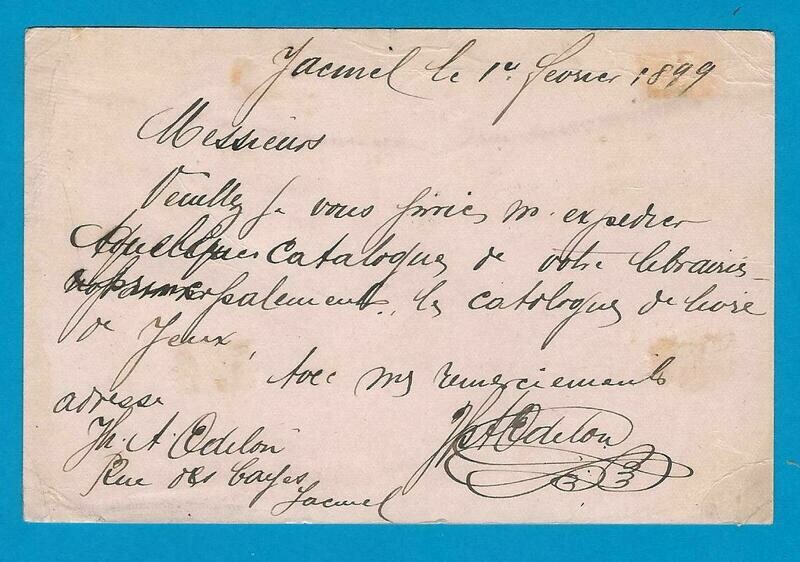 Jacmel le 1er fevrier 1899
Messieurs
Veuillez je vous prie m'expedier
quelques catalogues de votre librairie
principalement les catalogues de livre
de Jeux,
Avec mes remerciements
adresse
Jh. A. Odelon
Jh A Odelon
Rue des Cayes
Jacmel